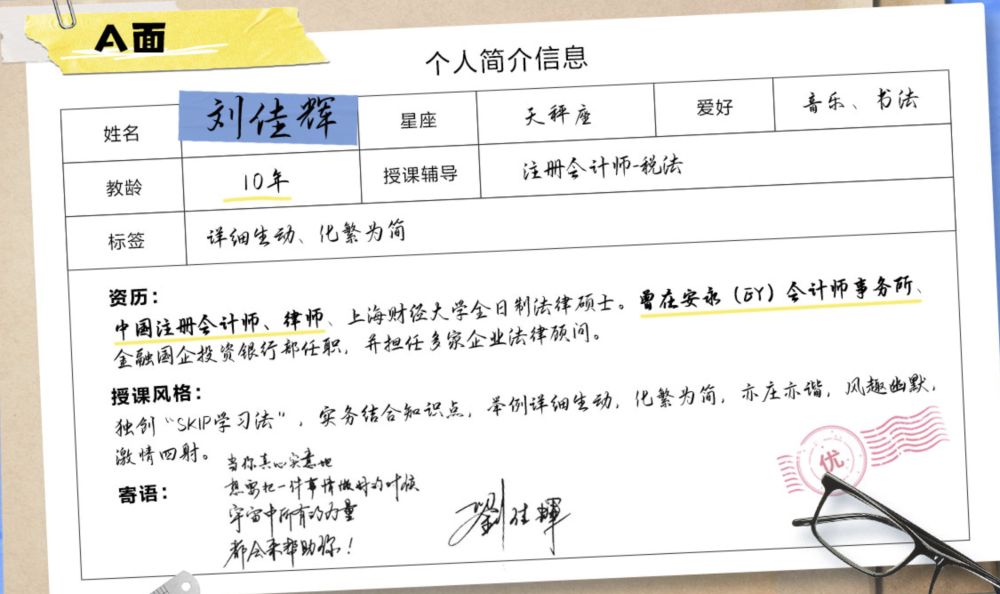 A面
个人简介信息
姓名 刘佳辉 星座 天秤座 爱好 音乐、书法
教龄 10年 授课辅导 注册会计师-税法
标签 详细生动、化繁为简
资历：
中国注册会计师、律师、上海财经大学全日制法律硕士。曾在安永（EY）会计师事务所、
金融国企投资银行部任职，并担任多家企业法律顾问。
授课风格：
独创“SKIP学习法”，实务结合知识点，举例详细生动，化繁为简，亦庄亦谐，风趣幽默，
激情四射。
寄语：
当你真心实意地
想要把一件事情做好的时候
宇宙中所有的力量
都会来帮助你！
劉佳輝
优